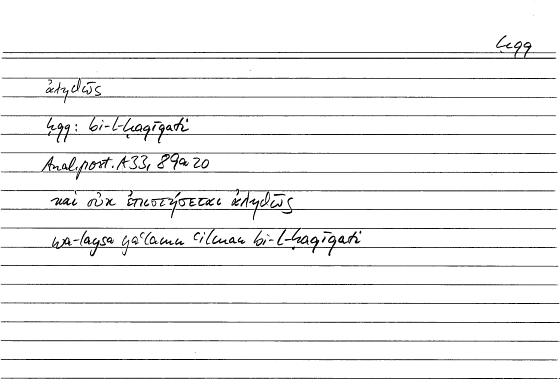 ḥqq
ἀληθῶς
ḥqq: bi-l-ḥaqīqati
Anal. post. A33, 89a20
καὶ οὐκ ἐπιστήσεται ἀληθῶς
wa-laysa yaʿlamu ʿilman bi-l-ḥaqīqati